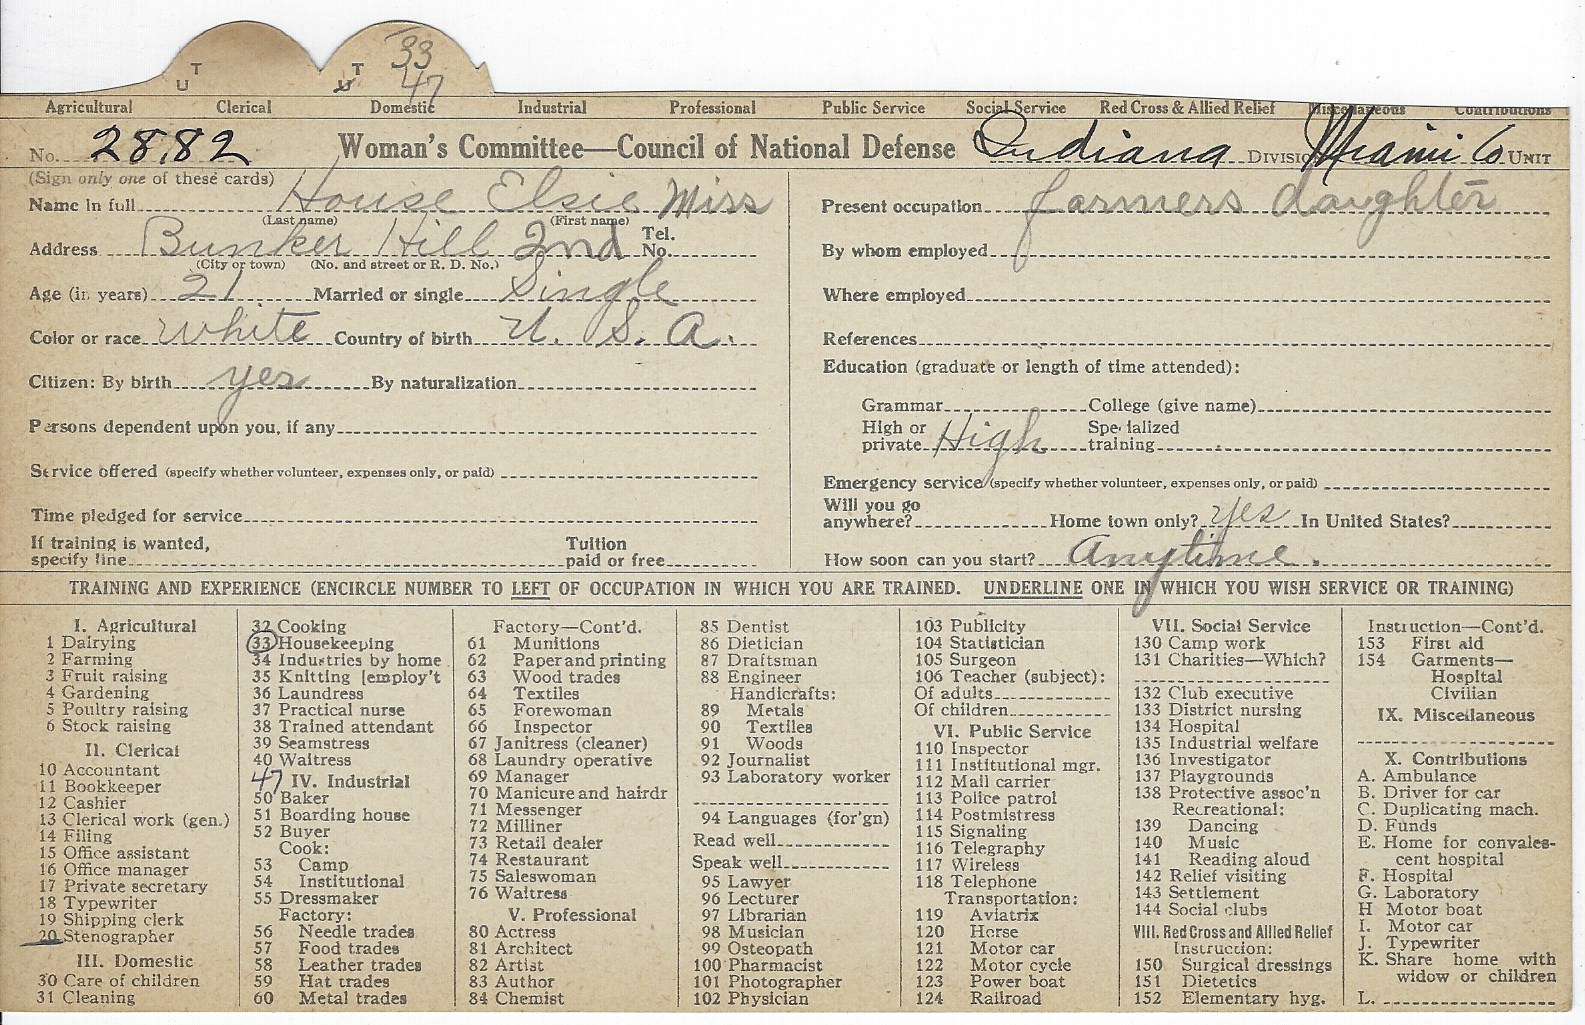 33
T T
U U 47
Agricultural Clerical Domestic Industrial Professional Public Service Social Service Red Cross & Allied Relief Miscellaneous Contributions
No. 2882 Woman's Committee—Council of National Defense Indiana DIVISION Miami Co UNIT
(Sign only one of these cards)
Name in full House Elsie Miss
(Last name) (First name)
Address Bunker Hill 2nd Tel. No.
(City or town) (No. and street or R. D. No.)
Age (in years) 21 Married or single Single
Color or race white Country of birth U. S. A.
Citizen: By birth yes By naturalization
Persons dependent upon you, if any
Service offered (specify whether volunteer, expenses only, or paid)
Time pledged for service
If training is wanted, Tuition
specify line paid or free
Present occupation farmers daughter
By whom employed
Where employed
References
Education (graduate or length of time attended):
Grammar College (give name)
High or Specialized
private High training
Emergency service (specify whether volunteer, expenses only, or paid)
Will you go
anywhere? Home town only? yes In United States?
How soon can you start? Anytime.
TRAINING AND EXPERIENCE (ENCIRCLE NUMBER TO LEFT OF OCCUPATION IN WHICH YOU ARE TRAINED. UNDERLINE ONE IN WHICH YOU WISH SERVICE OR TRAINING)
I. Agricultural
1 Dairying
2 Farming
3 Fruit raising
4 Gardening
5 Poultry raising
6 Stock raising
II. Clerical
10 Accountant
11 Bookkeeper
12 Cashier
13 Clerical work (gen.)
14 Filing
15 Office assistant
16 Office manager
17 Private secretary
18 Typewriter
19 Shipping clerk
20 Stenographer
III. Domestic
30 Care of children
31 Cleaning
32 Cooking
33 Housekeeping
34 Industries by home
35 Knitting [employ't
36 Laundress
37 Practical nurse
38 Trained attendant
39 Seamstress
40 Waitress
47 IV. Industrial
50 Baker
51 Boarding house
52 Buyer
Cook:
53 Camp
54 Institutional
55 Dressmaker
Factory:
56 Needle trades
57 Food trades
58 Leather trades
59 Hat trades
60 Metal trades
Factory—Cont'd.
61 Munitions
62 Paper and printing
63 Wood trades
64 Textiles
65 Forewoman
66 Inspector
67 Janitress (cleaner)
68 Laundry operative
69 Manager
70 Manicure and hairdr
71 Messenger
72 Milliner
73 Retail dealer
74 Restaurant
75 Saleswoman
76 Waitress
V. Professional
80 Actress
81 Architect
82 Artist
83 Author
84 Chemist
85 Dentist
86 Dietician
87 Draftsman
88 Engineer
Handicrafts:
89 Metals
90 Textiles
91 Woods
92 Journalist
93 Laboratory worker
94 Languages (for'gn)
Read well
Speak well
95 Lawyer
96 Lecturer
97 Librarian
98 Musician
99 Osteopath
100 Pharmacist
101 Photographer
102 Physician
103 Publicity
104 Statistician
105 Surgeon
106 Teacher (subject):
Of adults
Of children
VI. Public Service
110 Inspector
111 Institutional mgr.
112 Mail carrier
113 Police patrol
114 Postmistress
115 Signaling
116 Telegraphy
117 Wireless
118 Telephone
Transportation:
119 Aviatrix
120 Horse
121 Motor car
122 Motor cycle
123 Power boat
124 Railroad
VII. Social Service
130 Camp work
131 Charities—Which?
132 Club executive
133 District nursing
134 Hospital
135 Industrial welfare
136 Investigator
137 Playgrounds
138 Protective assoc'n
Recreational:
139 Dancing
140 Music
141 Reading aloud
142 Relief visiting
143 Settlement
144 Social clubs
VIII. Red Cross and Allied Relief
Instruction:
150 Surgical dressings
151 Dietetics
152 Elementary hyg.
Instruction—Cont'd.
153 First aid
154 Garments—
Hospital
Civilian
IX. Miscellaneous
X. Contributions
A. Ambulance
B. Driver for car
C. Duplicating mach.
D. Funds
E. Home for convales-
cent hospital
F. Hospital
G. Laboratory
H Motor boat
I. Motor car
J. Typewriter
K. Share home with
widow or children
L.